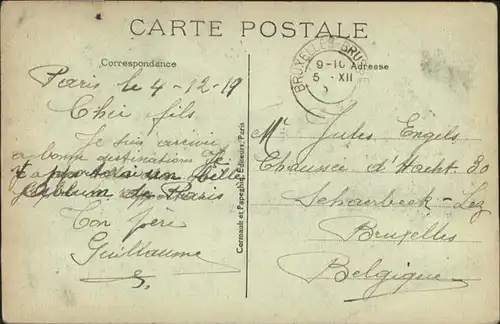 CARTE POSTALE
Correspondance
Adresse
BRUXELLES-BRUSSEL
9-10
5 XII
Paris le 4-12-19
Cher fils
Je suis arrivé
a bonne destination Je
t'apporterai un belle
Album de Paris
Ton père
Guillaume
Cormault et Papeghin, Éditeurs, Paris
Mr Jules Engels
Chaussée d'Hacht 30
Schaerbeek-Lez
Bruxelles
Belgique